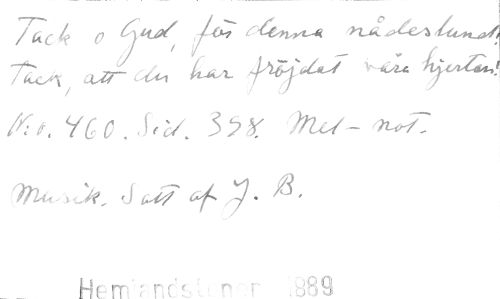 Tack o Gud, för denna nådestund!
Tack, att du har fröjdat våra hjertan!
N:o. 460. Sid. 398. Mel-not.
Musik. Satt af J. B.
Hemlandstoner 1889